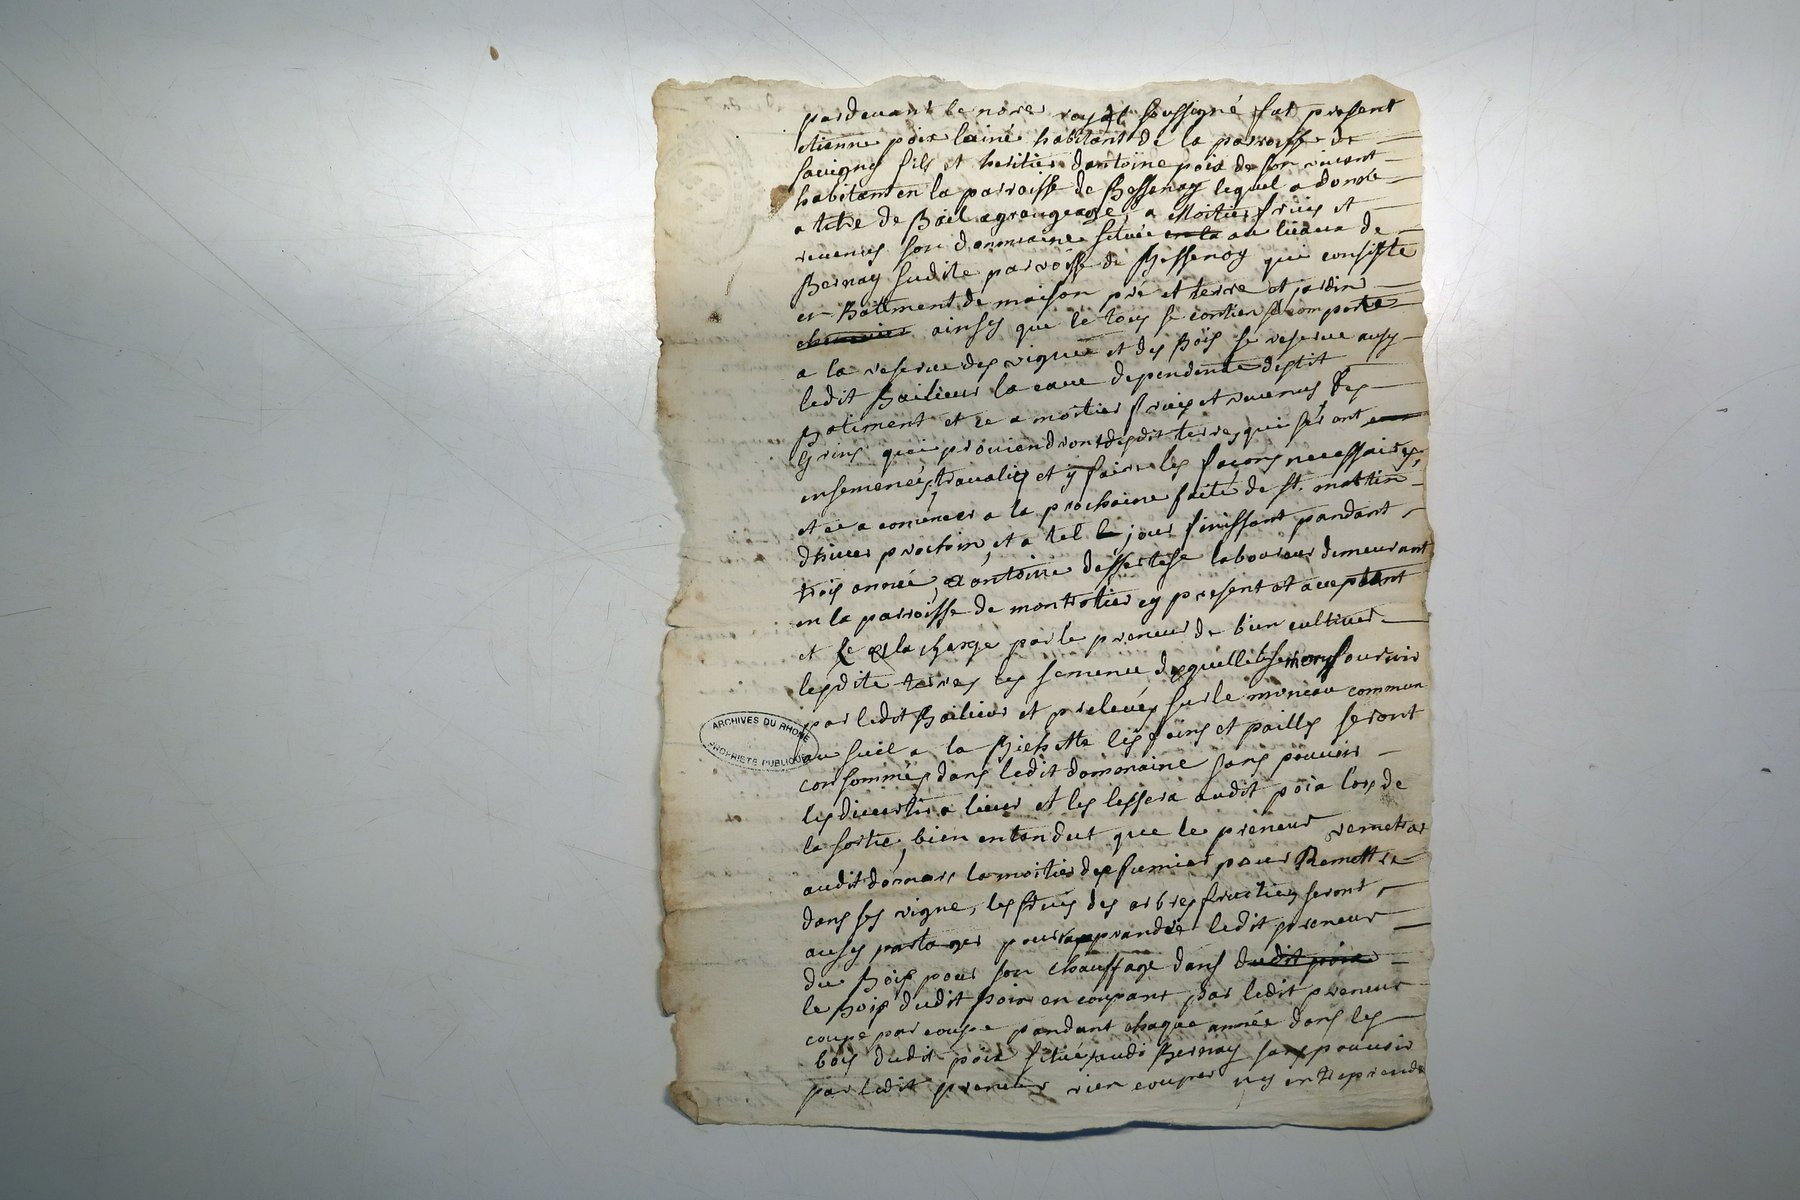 pardevant le nore royal soussigné fut present
etienne poix lainé habitant de la parroisse de
savigny fils et heritier dantoine poix de son vivant
habitant en la parroisse de Bessenay lequel a donné
a titre de Bail agrangeage, a Moitier fruis et
revenus son dommaine située en la au lieaux de
Bernay sudite parroisse de Bessenay qui consiste
en Batiment de maison pré et terre et jardin
ainsy que le tous se contien se comporte
a la reserve des vignes et des Bois se reserve ausy
ledit Bailieur la cave dependente desdit
Batiment et ce a moitier fruis et revenus des
Grins qui proviendront desdit terres qui seront
ensemencés, travaliés et y faire les façons necessaires,
et ce a comencer a la prochaine faite de st. martin
dhiver prochain, et a tel le jour finissant pandant
trois année, a antoine dessertese laboureur demeurant
en la parroisse de montrotier cy present et aceptant
et a la charge par le preneur de bien cultiver
lesdite terres les semence desquelle seront fournir
par ledit Bailieur et prelevés sur le monceau commun
au sueil a la Bichette les foins et pailles seront
consommés dans ledit domaine sans pouvoir
les divertir a lieur et les lessera audit poix lors de
la sortie, bien entandut que le preneur remetrat
audit la moitier des fumier pour Remettre
dans ses vigne, les fruis des arbres fruitier seront
ausy partager pour prandre ledit preneur
du Bois pour son chauffage dans dudit poix
le Bois dudit poix en coupant par ledit preneur
coupe par coupe pandant chaque année dans les
bois dudit poix situé audi Bernay sans pouvoir
par ledit preneur rien couper ny entreprendre
ARCHIVES DU RHONE
PROPRIETE PUBLIQUE